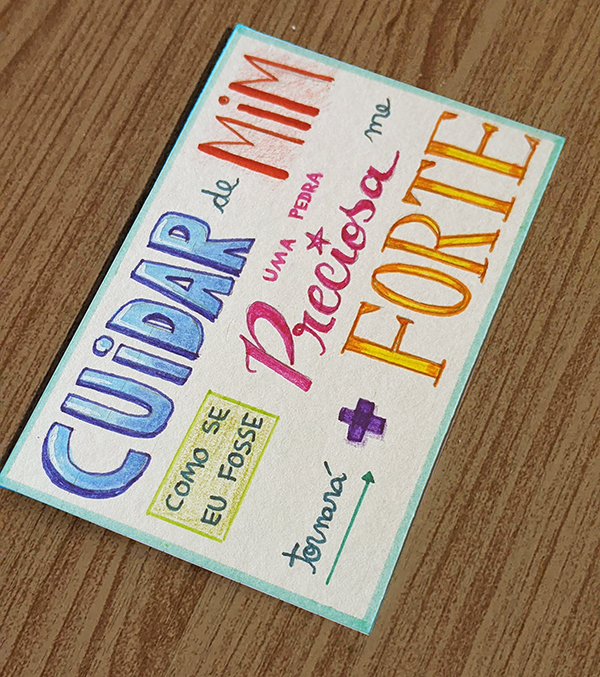 CUIDAR de MIM
COMO SE
EU FOSSE
UMA PEDRA
Preciosa me
tornará + FORTE